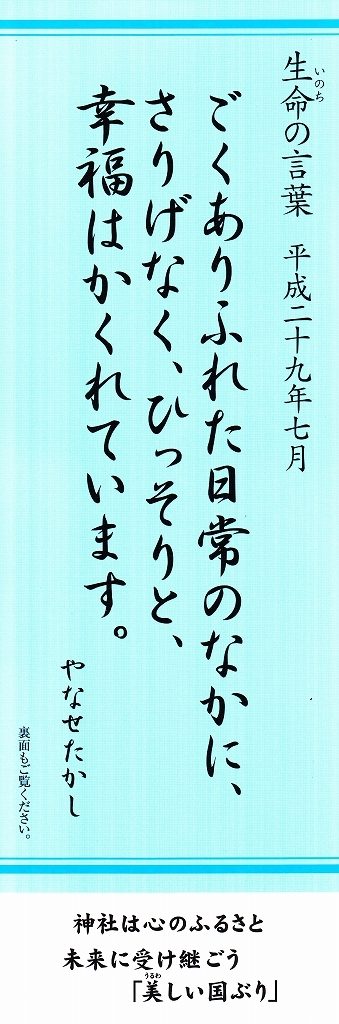 生命の言葉　平成二十九年七月
いのち
ごくありふれた日常のなかに、
さりげなく、ひっそりと、
幸福はかくれています。
やなせたかし
裏面もご覧ください。
神社は心のふるさと
未来に受け継ごう
「美しい国ぶり」
うるわ